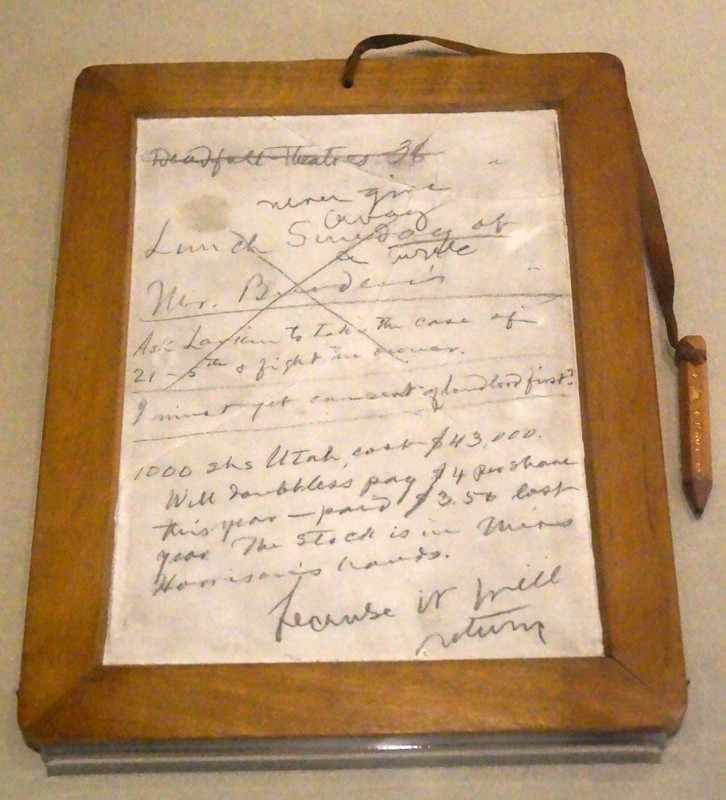 never give
away
Lunch Sunday at
a smile
Mr. B
Ask Larkin to take the case of
21 – 5th & fight
I must get consent of landlord first?
1000 shs Utah, cost $43,000.
Will doubtless pay $4 per share
this year — paid $3.50 last
year. The stock is in Miss
Harrison's hands.
because it will
return